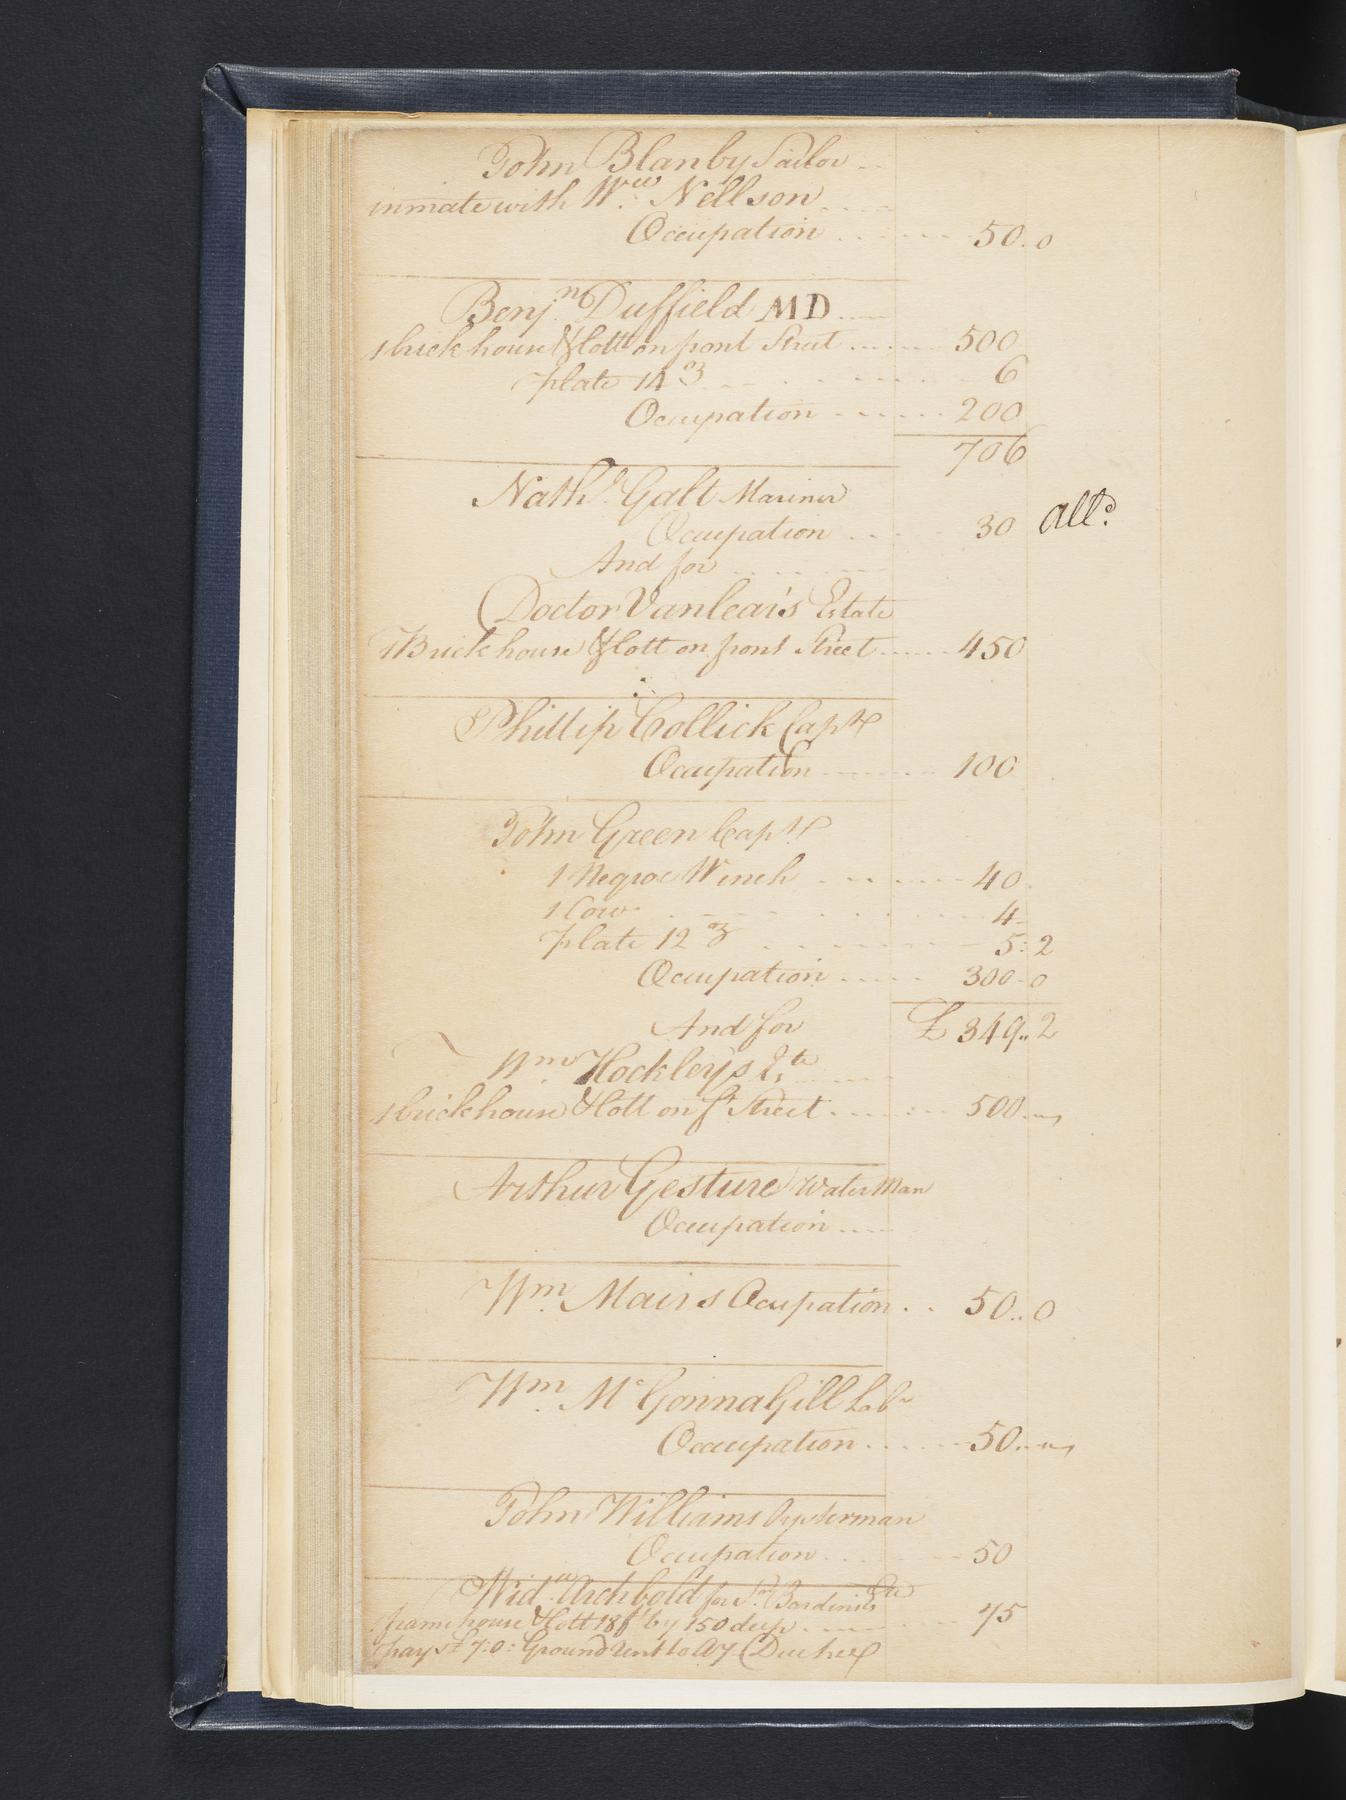 John Blanby Sailor
inmate with Wm Nellson
Occupation 50.0
Benjn Duffield MD
1 brick house & lott on front Street 500
plate 14 oz 6
Occupation 200
706
Nathl Galt Mariner
Occupation 30 alld
And for
Doctor Vanlear's Estate
1 Brick house & lott on front Street 450
Phillip Collick Capt
Occupation 100
John Green Capt
1 Negroe Winch 40
1 Cow 4
plate 12 oz 5:2
Occupation 300-0
And for £ 349..2
Wm Hockleys Este
1 brick house & lott on ft Street 500
Arthur Gesture Water Man
Occupation
Wm Mairs Ocupation 50..0
Wm McGonnaGill Labr
Occcupation 50
John Williams Oysterman
Occupation 50
Widw Archbold for Bardenis Este
1 frame house & lott 18 ft by 150 deep 75
pays £ 7:0: Ground Rent to Duchee